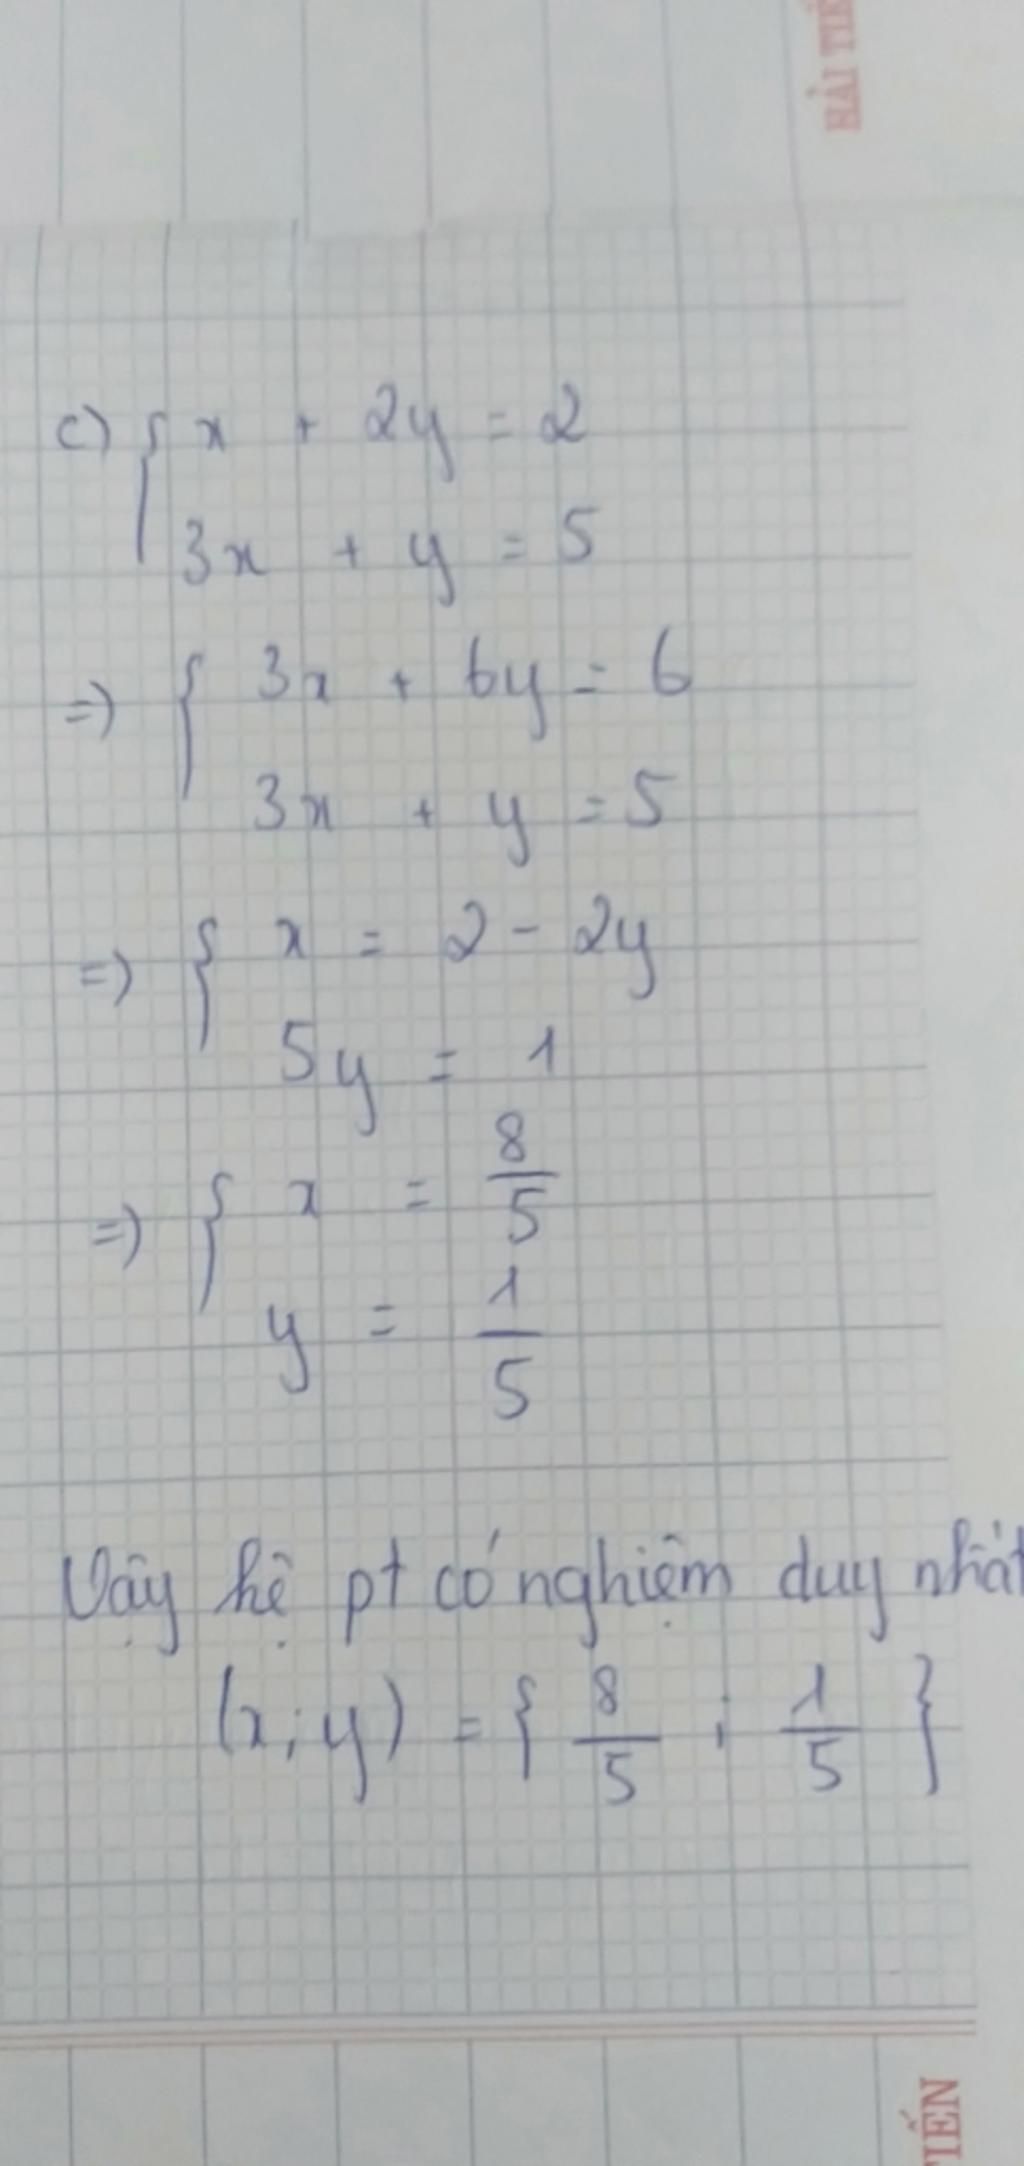 HẢI TIẾ
c) { x + 2y = 2
3x + y = 5
=> { 3x + 6y = 6
3x + y = 5
=> { x = 2 - 2y
5y = 1
=> { x = 8/5
y = 1/5
Vậy hệ pt có nghiệm duy nhất
(x; y) = { 8/5 ; 1/5 }
TIẾN